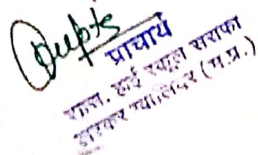 Gupta
प्राचार्य
शास. हाई स्कूल सराफा
लश्कर ग्वालियर (म.प्र.)